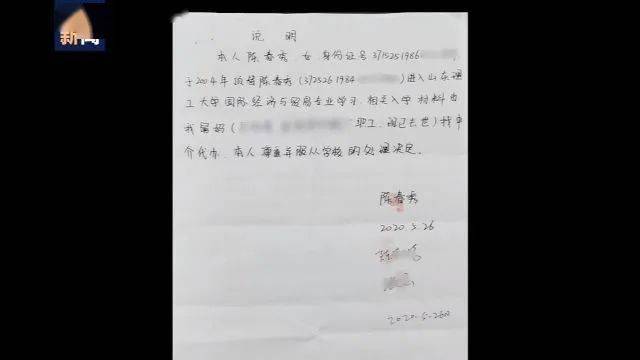 新闻
说明
本人陈春秀,女,身份证号3715251986
于2004年顶替陈春秀(3725261984)进入山东理
工大学国际经济与贸易专业学习,相关入学材料由
我舅妈(职工,现已去世)找中
介代办,本人尊重并服从学校的处理决定。
陈春秀
2020.5.26
2020.5.26日